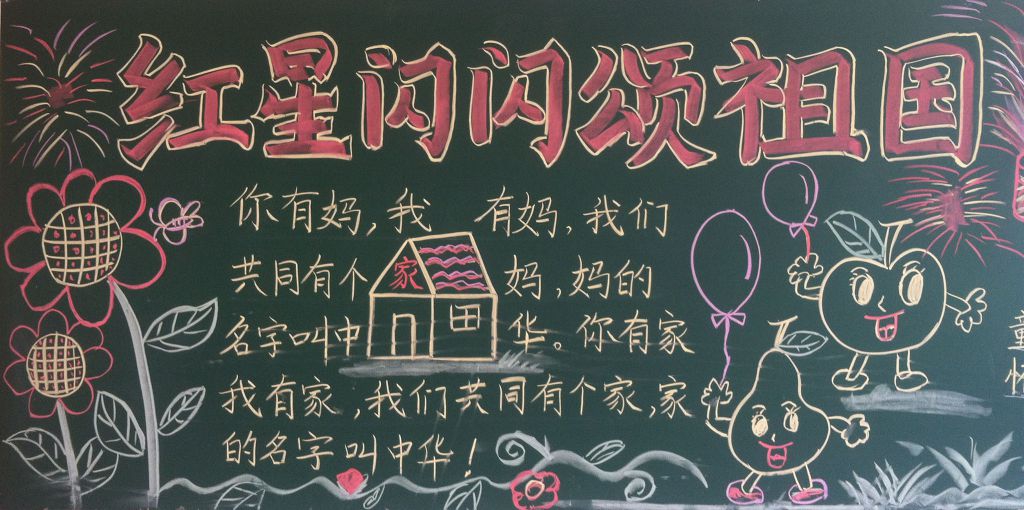 红星闪闪颂祖国
你有妈，我 有妈，我们
共同有个 家 妈，妈的
名字叫中 华。你有家
我有家，我们共同有个家，家
的名字叫中华！